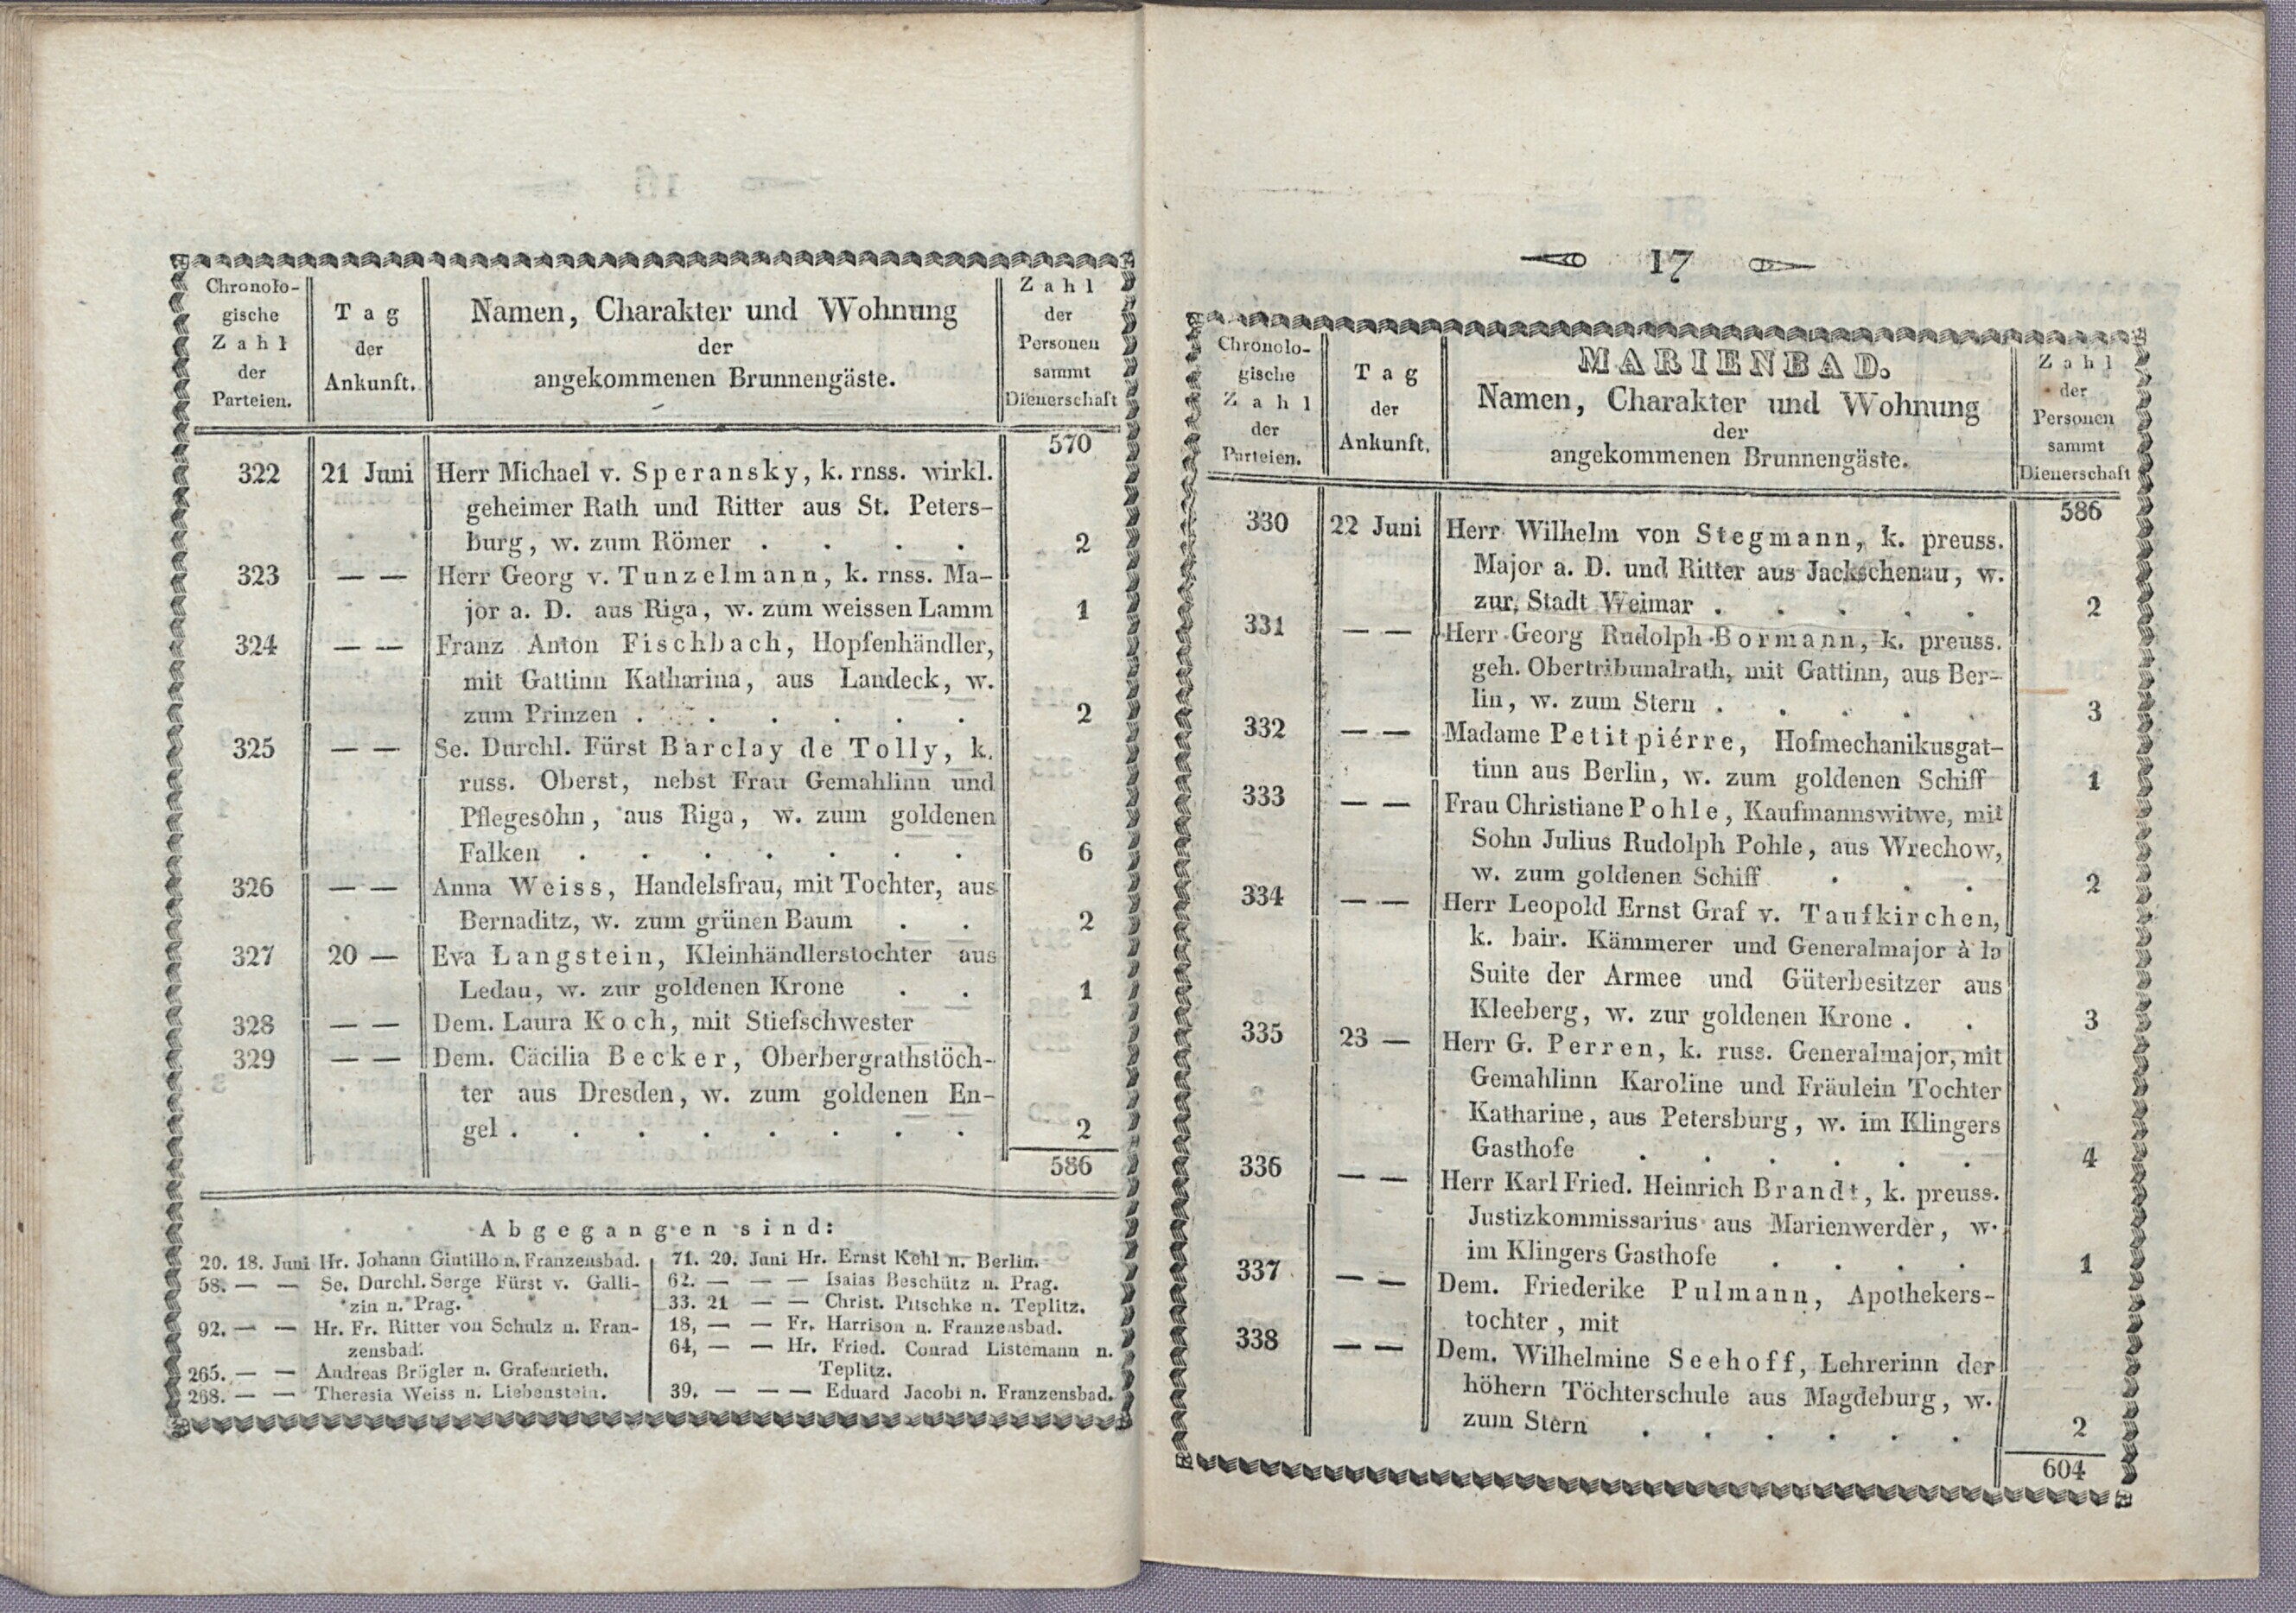 Chronolo-
gische
Zahl
der
Parteien.
Tag
der
Ankunft.
Namen, Charakter und Wohnung
der
angekommenen Brunnengäste.
Zahl
der
Personen
sammt
Dienerschaft
570
322 21 Juni Herr Michael v. Speransky, k. rnss. wirkl.
geheimer Rath und Ritter aus St. Peters-
burg, w. zum Römer . . . . 2
323 — — Herr Georg v. Tunzelmann, k. rnss. Ma-
jor a. D. aus Riga, w. zum weissen Lamm 1
324 — — Franz Anton Fischbach, Hopfenhändler,
mit Gattinn Katharina, aus Landeck, w.
zum Prinzen . . . . . . 2
325 — — Se. Durchl. Fürst Barclay de Tolly, k.
russ. Oberst, nebst Frau Gemahlinn und
Pflegesohn, aus Riga, w. zum goldenen
Falken . . . . . . . 6
326 — — Anna Weiss, Handelsfrau, mit Tochter, aus
Bernaditz, w. zum grünen Baum . . 2
327 20 — Eva Langstein, Kleinhändlerstochter aus
Ledau, w. zur goldenen Krone . . 1
328 — — Dem. Laura Koch, mit Stiefschwester
329 — — Dem. Cäcilia Becker, Oberbergrathstöch-
ter aus Dresden, w. zum goldenen En-
gel . . . . . . . . 2
586
Abgegangen sind:
20. 18. Juni Hr. Johann Gintillo n. Franzensbad.
58. — — Se. Durchl. Serge Fürst v. Galli-
zin n. Prag.
92. — — Hr. Fr. Ritter von Schulz n. Fran-
zensbad.
265. — — Andreas Brögler n. Grafenrieth.
268. — — Theresia Weiss n. Liebenstein.
71. 20. Juni Hr. Ernst Kehl n. Berlin.
62. — — — Isaias Beschütz n. Prag.
33. 21 — — Christ. Pitschke n. Teplitz.
18, — — Fr. Harrison n. Franzensbad.
64, — — Hr. Fried. Conrad Listemann n.
Teplitz.
39. — — — Eduard Jacobi n. Franzensbad.
17
Chronolo-
gische
Zahl
der
Parteien.
Tag
der
Ankunft.
MARIENBAD.
Namen, Charakter und Wohnung
der
angekommenen Brunnengäste.
Zahl
der
Personen
sammt
Dienerschaft
586
330 22 Juni Herr Wilhelm von Stegmann, k. preuss.
Major a. D. und Ritter aus Jackschenau, w.
zur Stadt Weimar . . . . . 2
331 — — Herr Georg Rudolph Bormann, k. preuss.
geh. Obertribunalrath, mit Gattinn, aus Ber-
lin, w. zum Stern . . . . . 3
332 — — Madame Petitpiérre, Hofmechanikusgat-
tinn aus Berlin, w. zum goldenen Schiff 1
333 — — Frau Christiane Pohle, Kaufmannswitwe, mit
Sohn Julius Rudolph Pohle, aus Wrechow,
w. zum goldenen Schiff . . . 2
334 — — Herr Leopold Ernst Graf v. Taufkirchen,
k. bair. Kämmerer und Generalmajor à la
Suite der Armee und Güterbesitzer aus
Kleeberg, w. zur goldenen Krone . . 3
335 23 — Herr G. Perren, k. russ. Generalmajor, mit
Gemahlinn Karoline und Fräulein Tochter
Katharine, aus Petersburg, w. im Klingers
Gasthofe . . . . . . 4
336 — — Herr Karl Fried. Heinrich Brandt, k. preuss.
Justizkommissarius aus Marienwerder, w.
im Klingers Gasthofe . . . . 1
337 — — Dem. Friederike Pulmann, Apothekers-
tochter, mit
338 — — Dem. Wilhelmine Seehoff, Lehrerinn der
höhern Töchterschule aus Magdeburg, w.
zum Stern . . . . . . 2
604